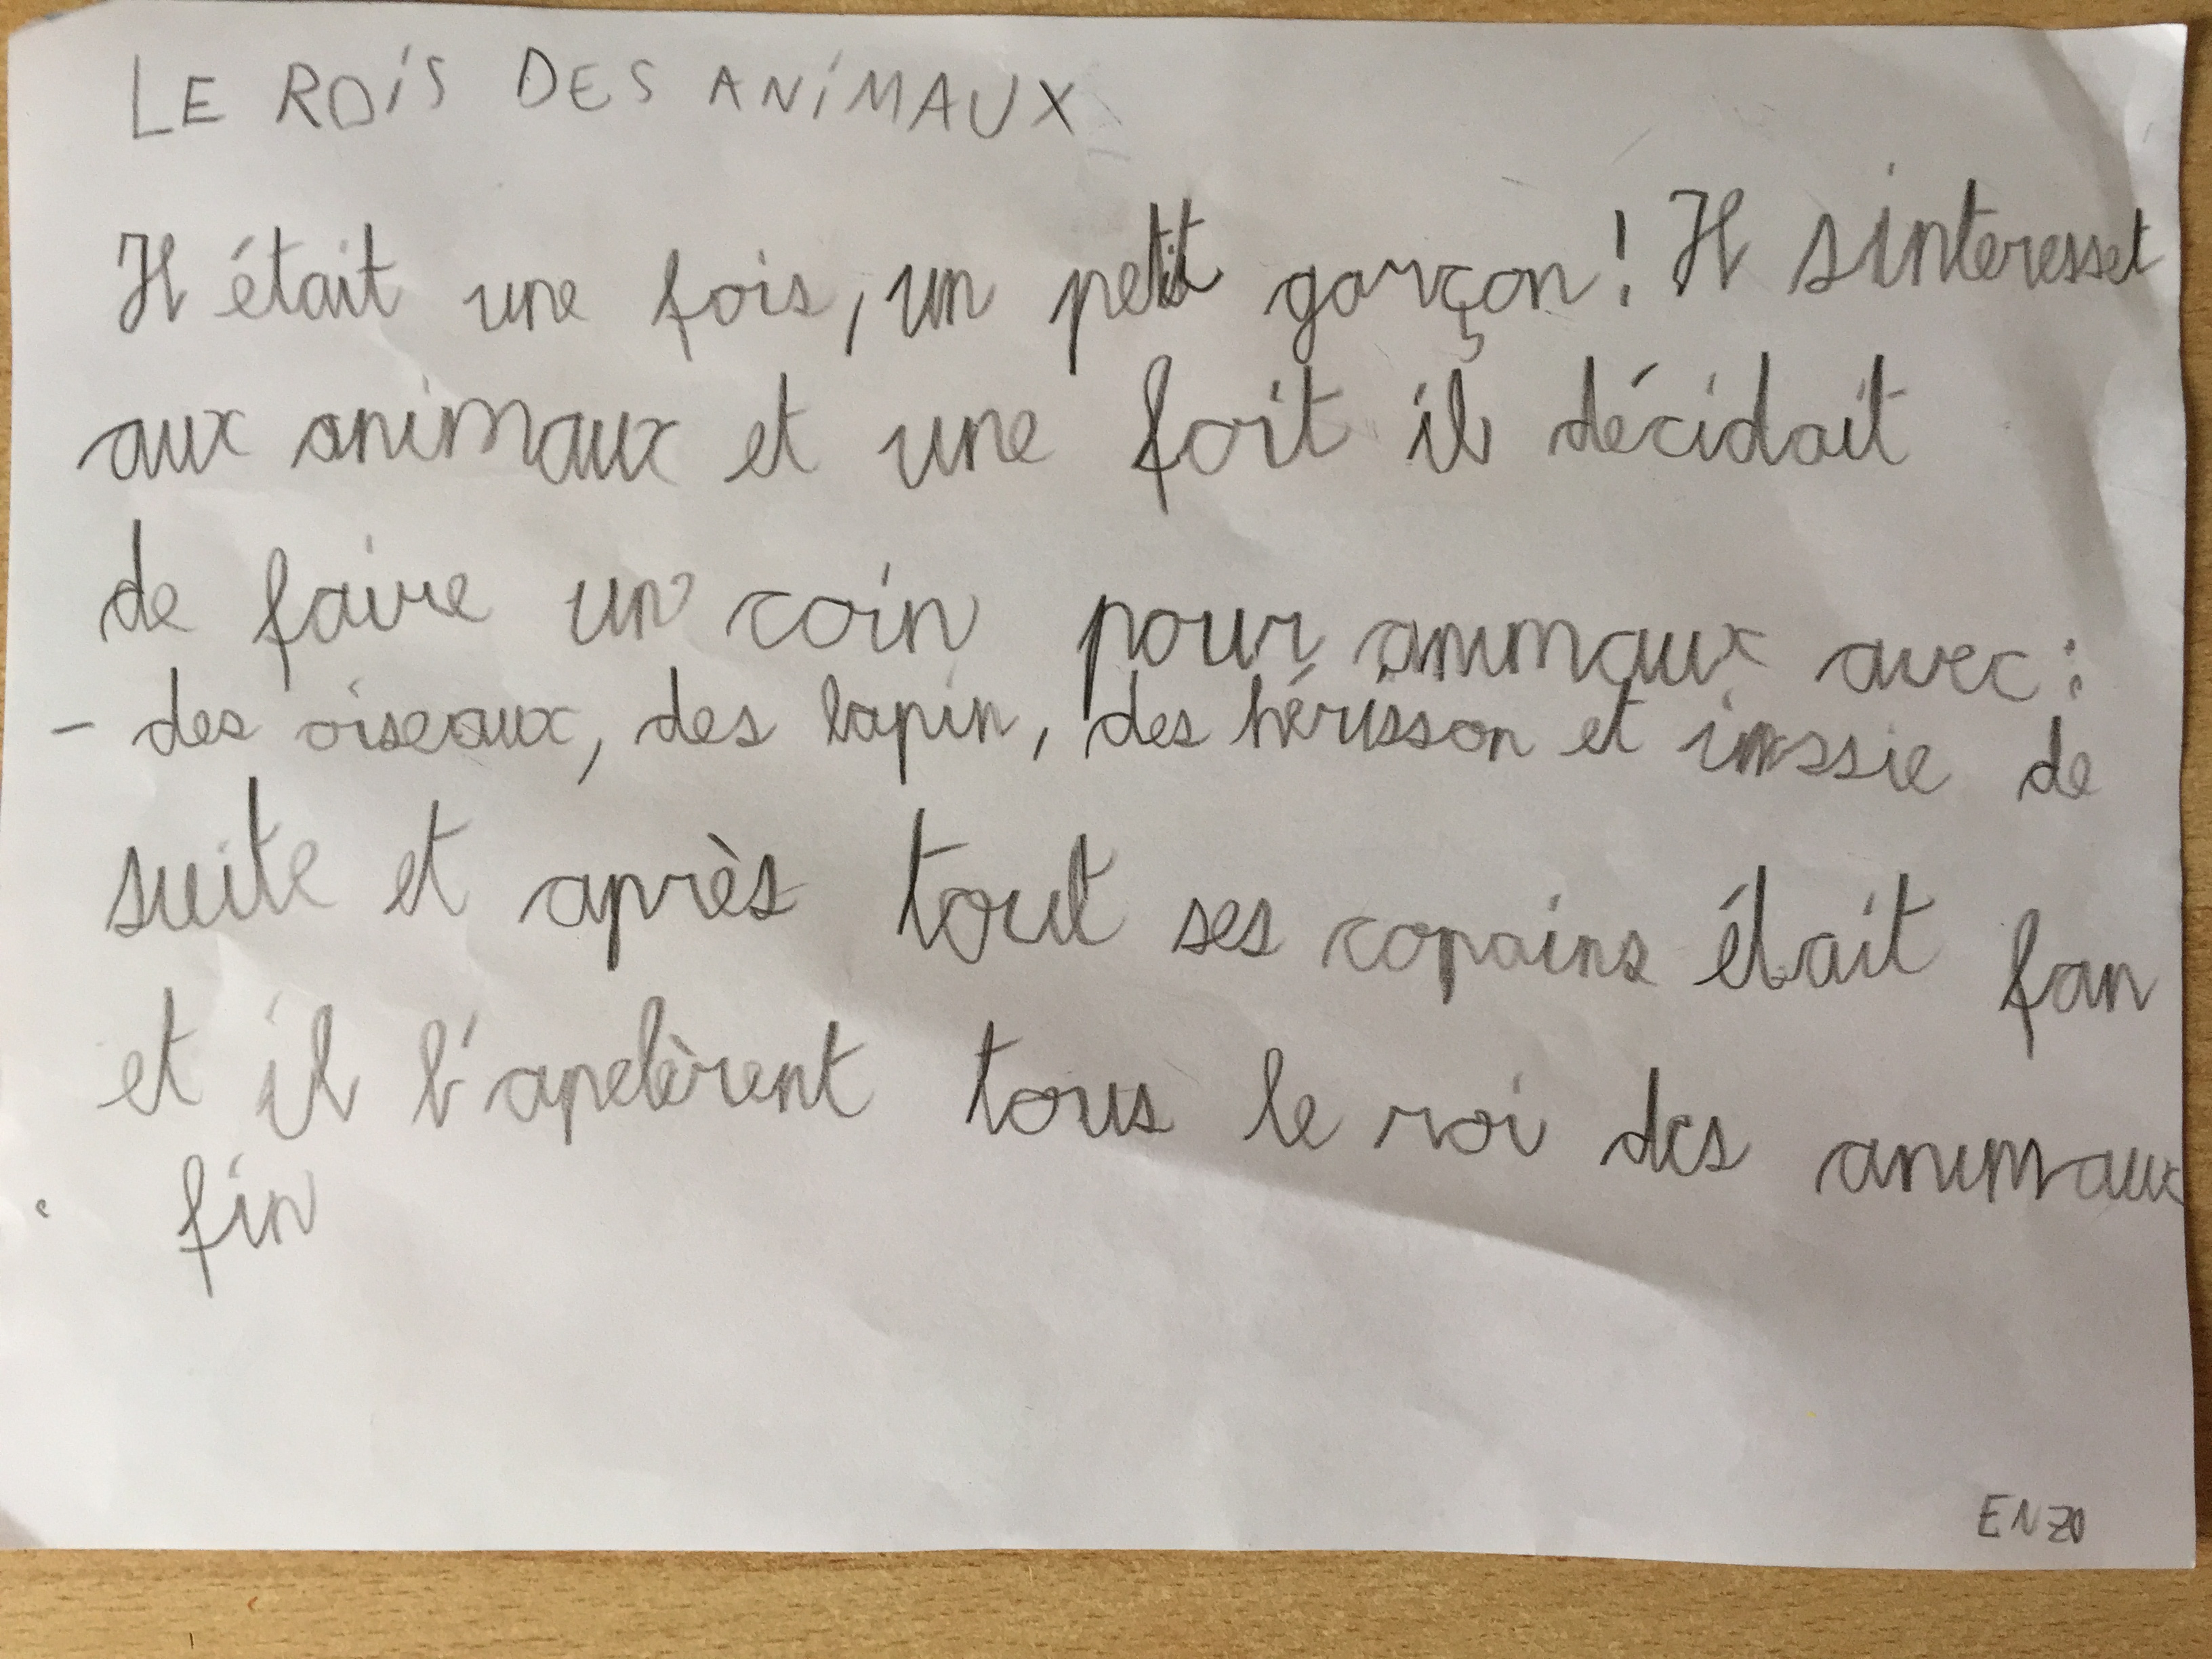 LE ROIS DES ANIMAUX
Il était une fois, un petit garçon ! Il sinteresset
aux animaux et une foit il décidait
de faire un coin pour animaux avec :
- des oiseaux, des lapin, des hérisson et inssie de
suite et après tout ses copains était fan
et il l'apelèrent tous le roi des animaux
. fin
ENZO